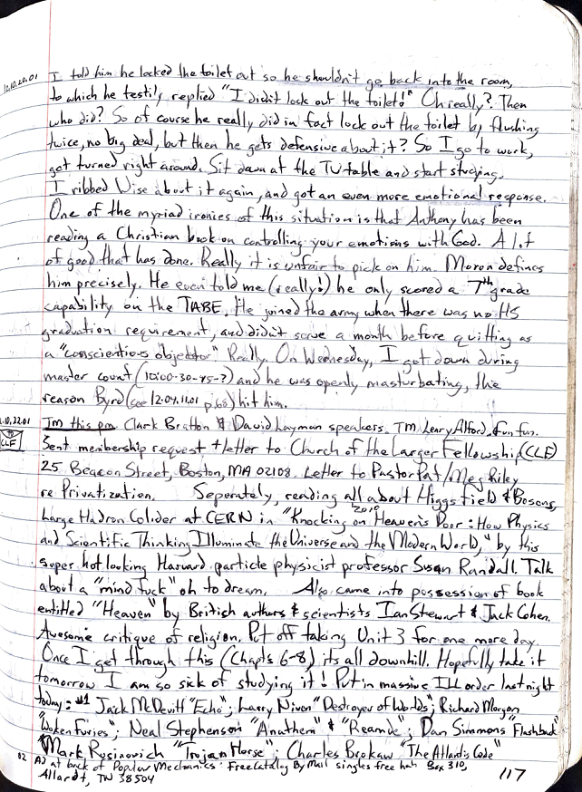 12.10.22.01 I told him he locked the toilet out so he shouldn't go back into the room,
to which he testily replied "I didn't lock out the toilet!" Oh really? Then
who did? So of course he really did in fact lock out the toilet by flushing
twice, no big deal, but then he gets defensive about it? So I go to work,
got turned right around. Sit down at the TV table and start studying.
I ribbed Wise about it again, and got an even more emotional response.
One of the myriad ironies of this situation is that Anthony has been
reading a Christian book on controlling your emotions with God. A lot
of good that has done. Really it is unfair to pick on him. Moron defines
him precisely. He even told me (really!) he only scored a 7th grade
capability on the TABE. He joined the army when there was no HS
graduation requirement, and didn't serve a month before quitting as
a "conscientious objector" Really. On Wednesday, I got down during
master count (10:00-30-45-?) and he was openly masturbating, the
reason Byrd (see 12.09.11.01 p.66) hit him.
.10.22.01 TM this pm Clark Bratton & David Layman speakers. TM Leary Alford. Fun fun.
CLF Sent membership request + letter to Church of the Larger Fellowship, (CLF)
25 Beacon Street, Boston, MA 02108. Letter to Pastor Pat/Meg Riley
re Privatization. Seperately, reading all about Higgs field & Bosons,
Large Hadron Colider at CERN in "Knocking on Heaven's Door: How Physics
2010
and Scientific Thinking Illuminate the Universe and the Modern World," by this
super hot looking Harvard particle physicist professor Susan Randall. Talk
about a "mind fuck" oh to dream. Also came into possession of book
entitled "Heaven" by British authors & scientists Ian Stewart & Jack Cohen.
Awesome critique of religion. Put off taking Unit 3 for one more day.
Once I get through this (Chapts 6-8) its all downhill. Hopefully take it
tomorrow I am so sick of studying it! Put in massive ILL order last night
today: #1 Jack McDevitt "Echo"; Larry Niven "Destroyer of Worlds"; Richard Morgan
"Woken Furies"; Neal Stephenson "Anathem" & "Reamde"; Dan Simmons "Flashback"
Mark Rusinovich "Trojan Horse"; Charles Brokaw "The Atlantis Code"
02 Ad at back of Popular Mechanics: Free Catalog By Mail singles free Box 310,
Allardt, TN 38504
117